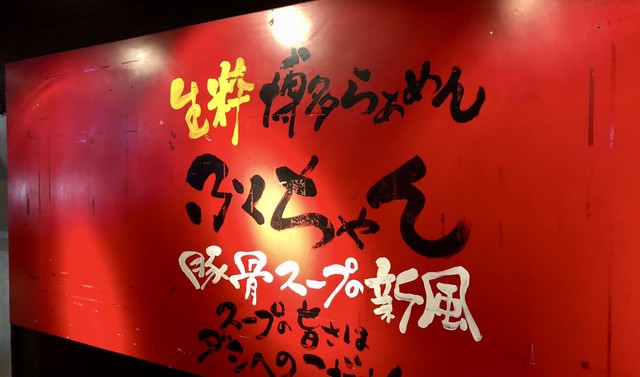 生粋 博多らぁめん
ふくちゃん
豚骨スープの新風
スープの旨さは
ダシへのこだわり